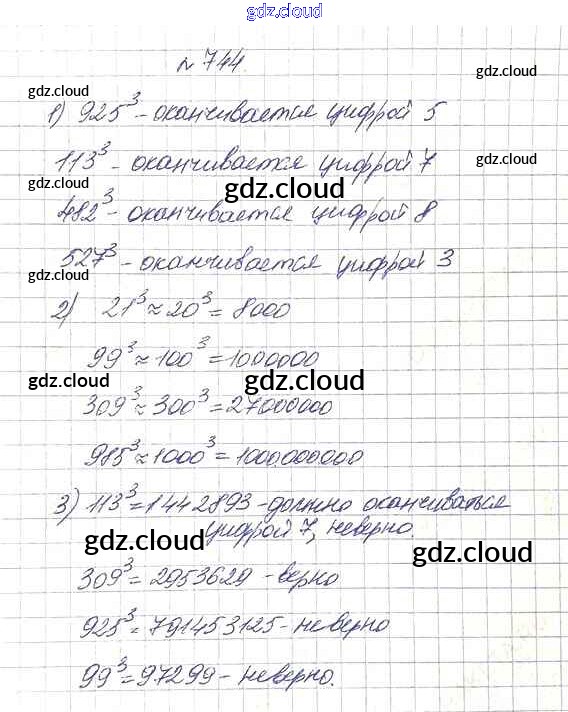 gdz.cloud
№ 744.
gdz.cloud
gdz.cloud
1) 925³ - оканчивается цифрой 5
113³ - оканчивается цифрой 7
gdz.cloud
gdz.cloud
gdz.cloud
482³ - оканчивается цифрой 8
527³ - оканчивается цифрой 3
gdz.cloud
gdz.cloud
2) 21³ ≈ 20³ = 8000
99³ ≈ 100³ = 1000000
gdz.cloud
gdz.cloud
gdz.cloud
309³ ≈ 300³ = 27000000
985³ ≈ 1000³ = 1000.000.000
gdz.cloud
3) 113³ = 1442893 - должно оканчиваться
цифрой 7, неверно.
gdz.cloud
gdz.cloud
309³ = 2953629 - верно
925³ = 791453125 - неверно
99³ = 97299 - неверно.